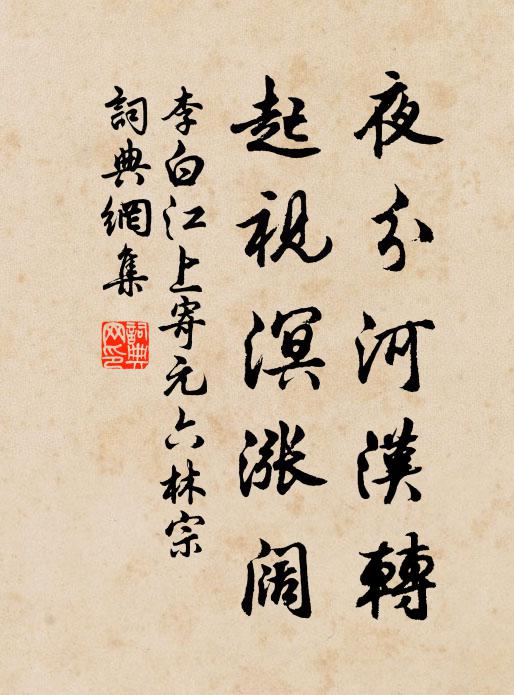 夜分河漢轉
起視溟漲闊
李白江上寄元六林宗
詞典網集
詞典
网印